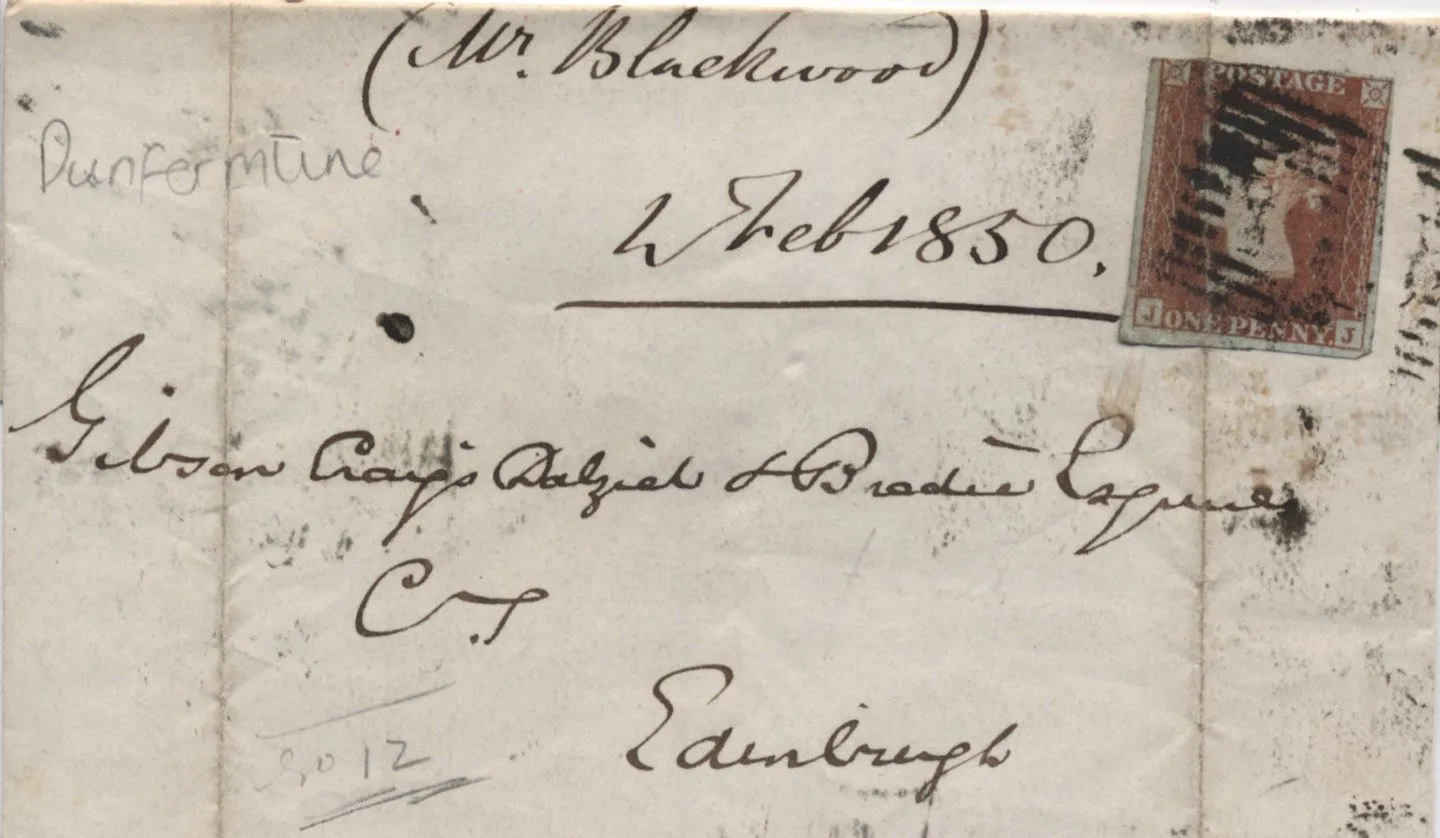 (Mr. Blackwood)
POSTAGE
Dunfermline
Feb 1850.
J ONE PENNY. J
Gibson Craigs Dalziel & Brodie Esquires
Edinburgh
12